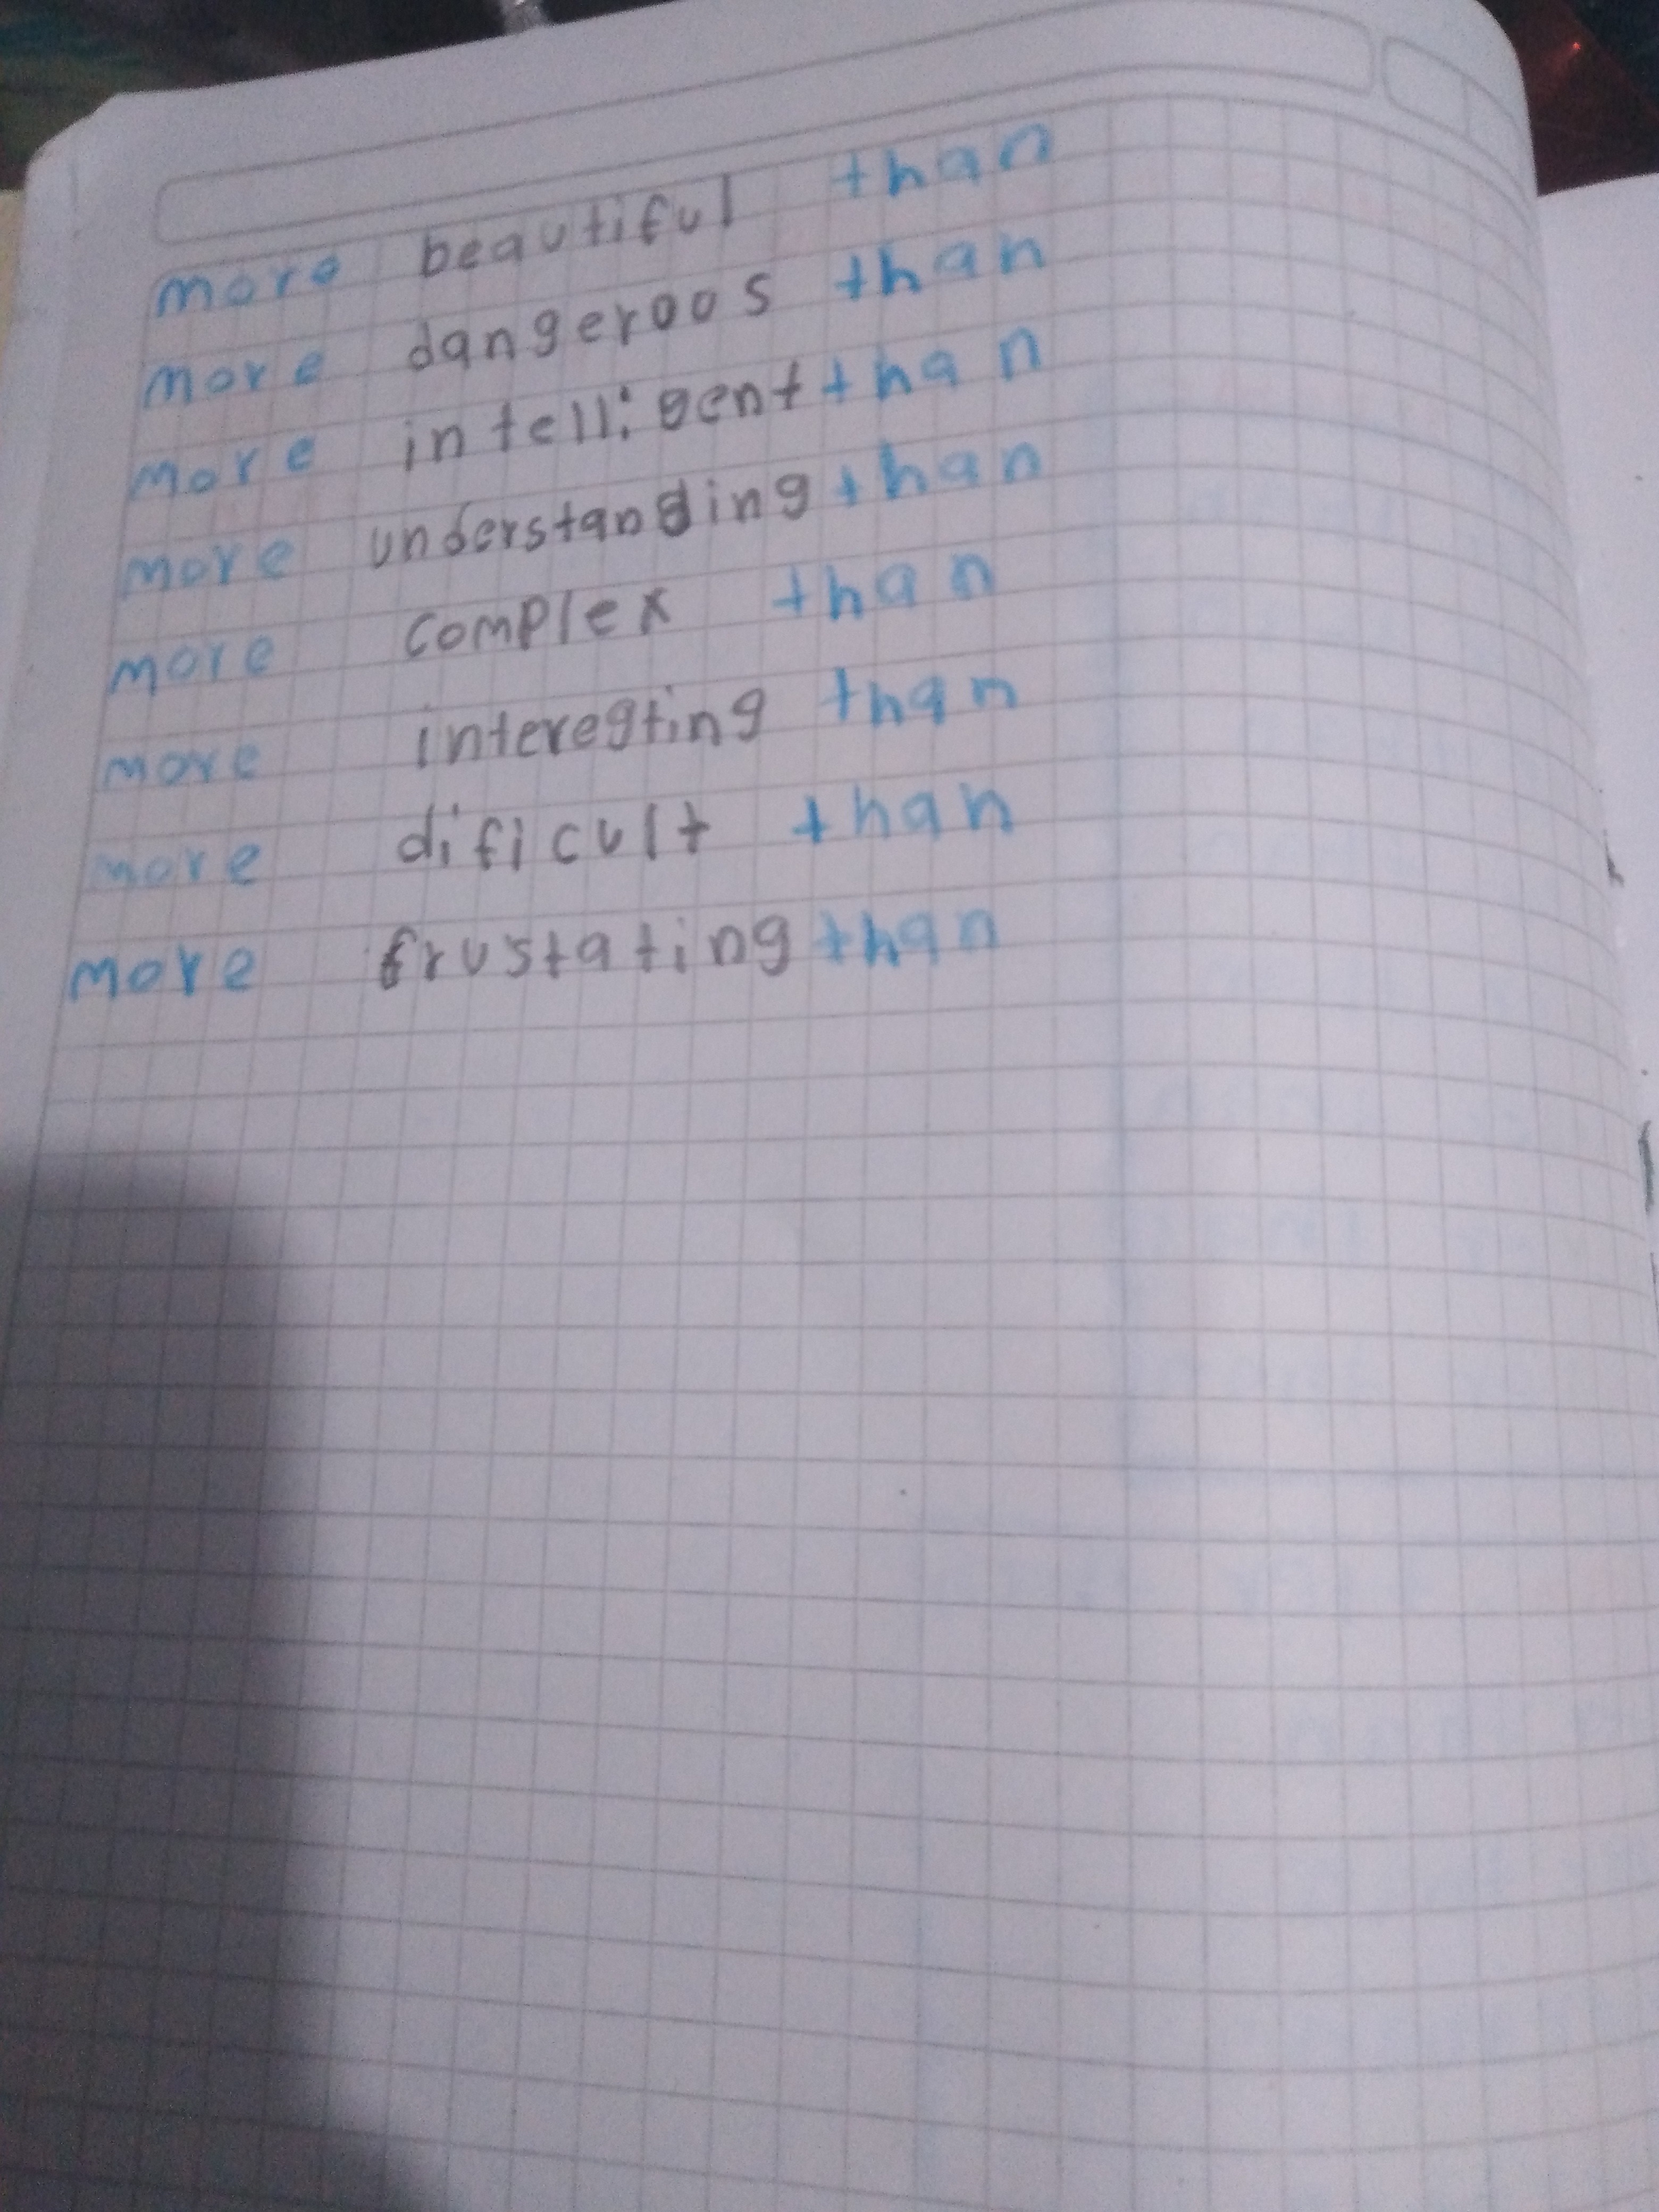 more beautiful than
more dangeroos than
more intelligent than
more understanding than
more complex than
more interegting than
more dificult than
more frustating than